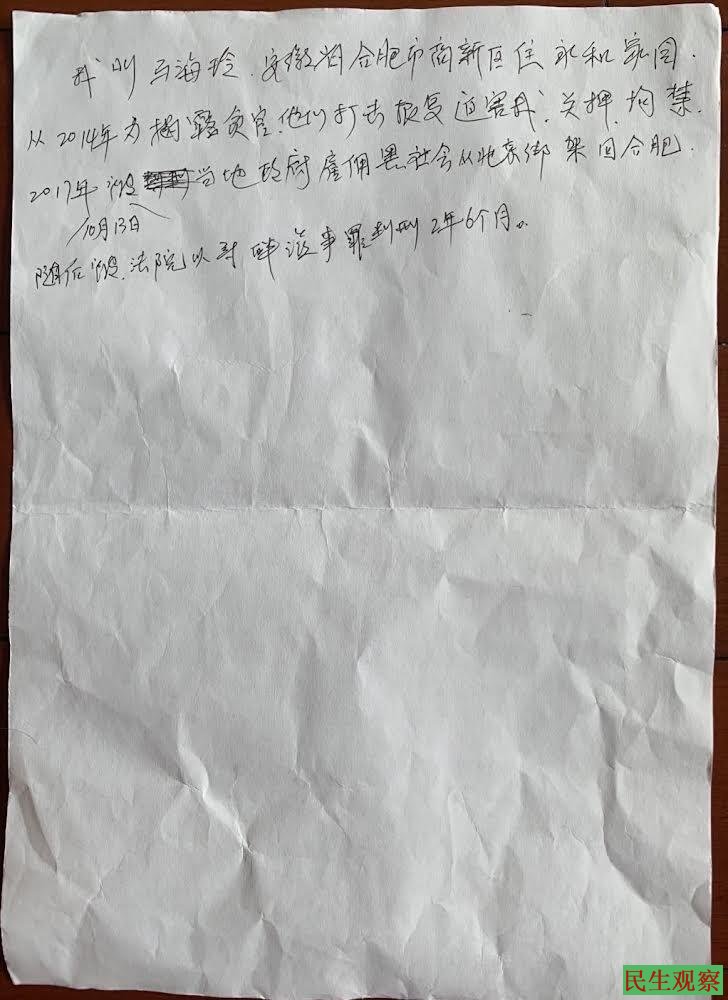 我叫马海玲.安徽省合肥市高新区住永和家园.
从2014年为揭露贪官.他们打击报复迫害我.关押.拘禁.
2017年10月13日被当地政府雇佣黑社会从北京绑架回合肥.
随后被.法院以寻衅滋事罪判刑2年6个月。
民生观察